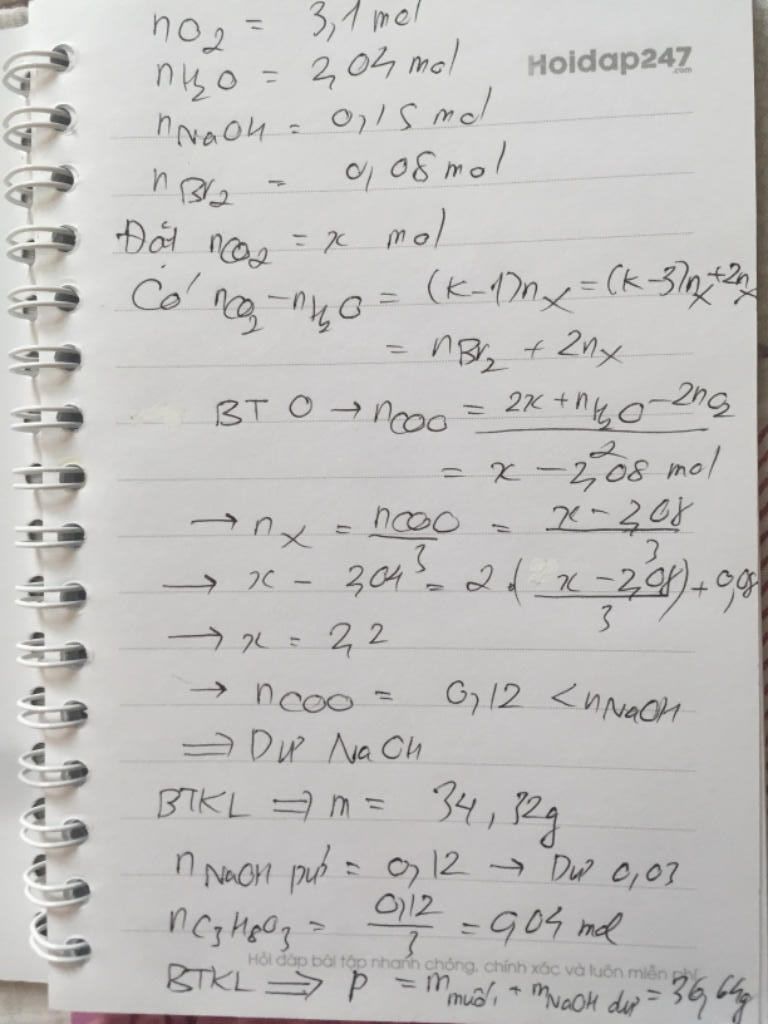 nO2 = 3,1 mol
Hoidap247
.com
nH2O = 2,04 mol
nNaOH = 0,15 mol
nBr2 = 0,08 mol
Đặt nCO2 = x mol
Có nCO2 - nH2O = (k-1)nX = (k-3)nX + 2nX
= nBr2 + 2nX
BT O → nCOO = (2x + nH2O - 2nO2)/2
= x - 2,08 mol
→ nX = nCOO/3 = (x - 2,08)/3
→ x - 2,04 = 2.((x - 2,08)/3) + 0,08
→ x = 2,2
→ nCOO = 0,12 < nNaOH
⇒ Dư NaOH
BTKL ⇒ m = 34,32g
nNaOH pứ = 0,12 → Dư 0,03
nC3H8O3 = 0,12/3 = 0,04 mol
Hỏi đáp bài tập nhanh chóng, chính xác và luôn miễn phí
BTKL ⇒ p = mmuối + mNaOH dư = 36,64g